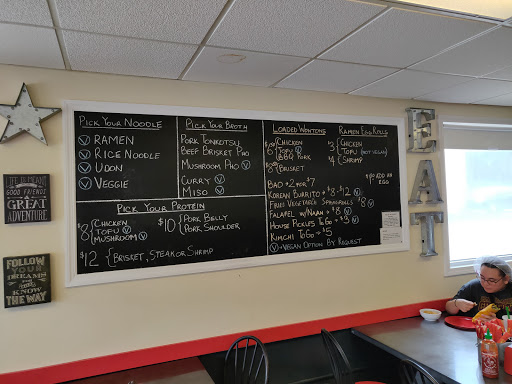 LIFE IS MEANT
GOOD FRIENDS
GREAT
ADVENTURE
FOLLOW
YOUR
DREAMS
THEY
KNOW
THE WAY
PICK YOUR NOODLE
Ⓥ RAMEN
Ⓥ RICE NOODLE
Ⓥ UDON
Ⓥ VEGGIE
PICK YOUR BROTH
PORK TONKOTSU
BEEF BRISKET PHO
MUSHROOM PHO Ⓥ
CURRY Ⓥ
MISO Ⓥ
PICK YOUR PROTEIN
$8 { CHICKEN
TOFU Ⓥ
MUSHROOM Ⓥ
$10 { PORK BELLY
PORK SHOULDER
$12 { BRISKET, STEAK OR SHRIMP
LOADED WONTONS
6 { CHICKEN
TOFU Ⓥ
BBQ PORK
8 { BRISKET
RAMEN EGG ROLLS
3 { CHICKEN
TOFU (NOT VEGAN)
4 { SHRIMP
ADD AN
EGG
BAO 2 FOR $7
KOREAN BURRITO $8-$12 Ⓥ
FRIED VEGETABLE SPRINGROLLS $8 Ⓥ
FALAFEL W/ NAAN $8 Ⓥ
HOUSE PICKLES TO GO $5 Ⓥ
KIMCHI TO GO $5
Ⓥ = VEGAN OPTION BY REQUEST
EAT